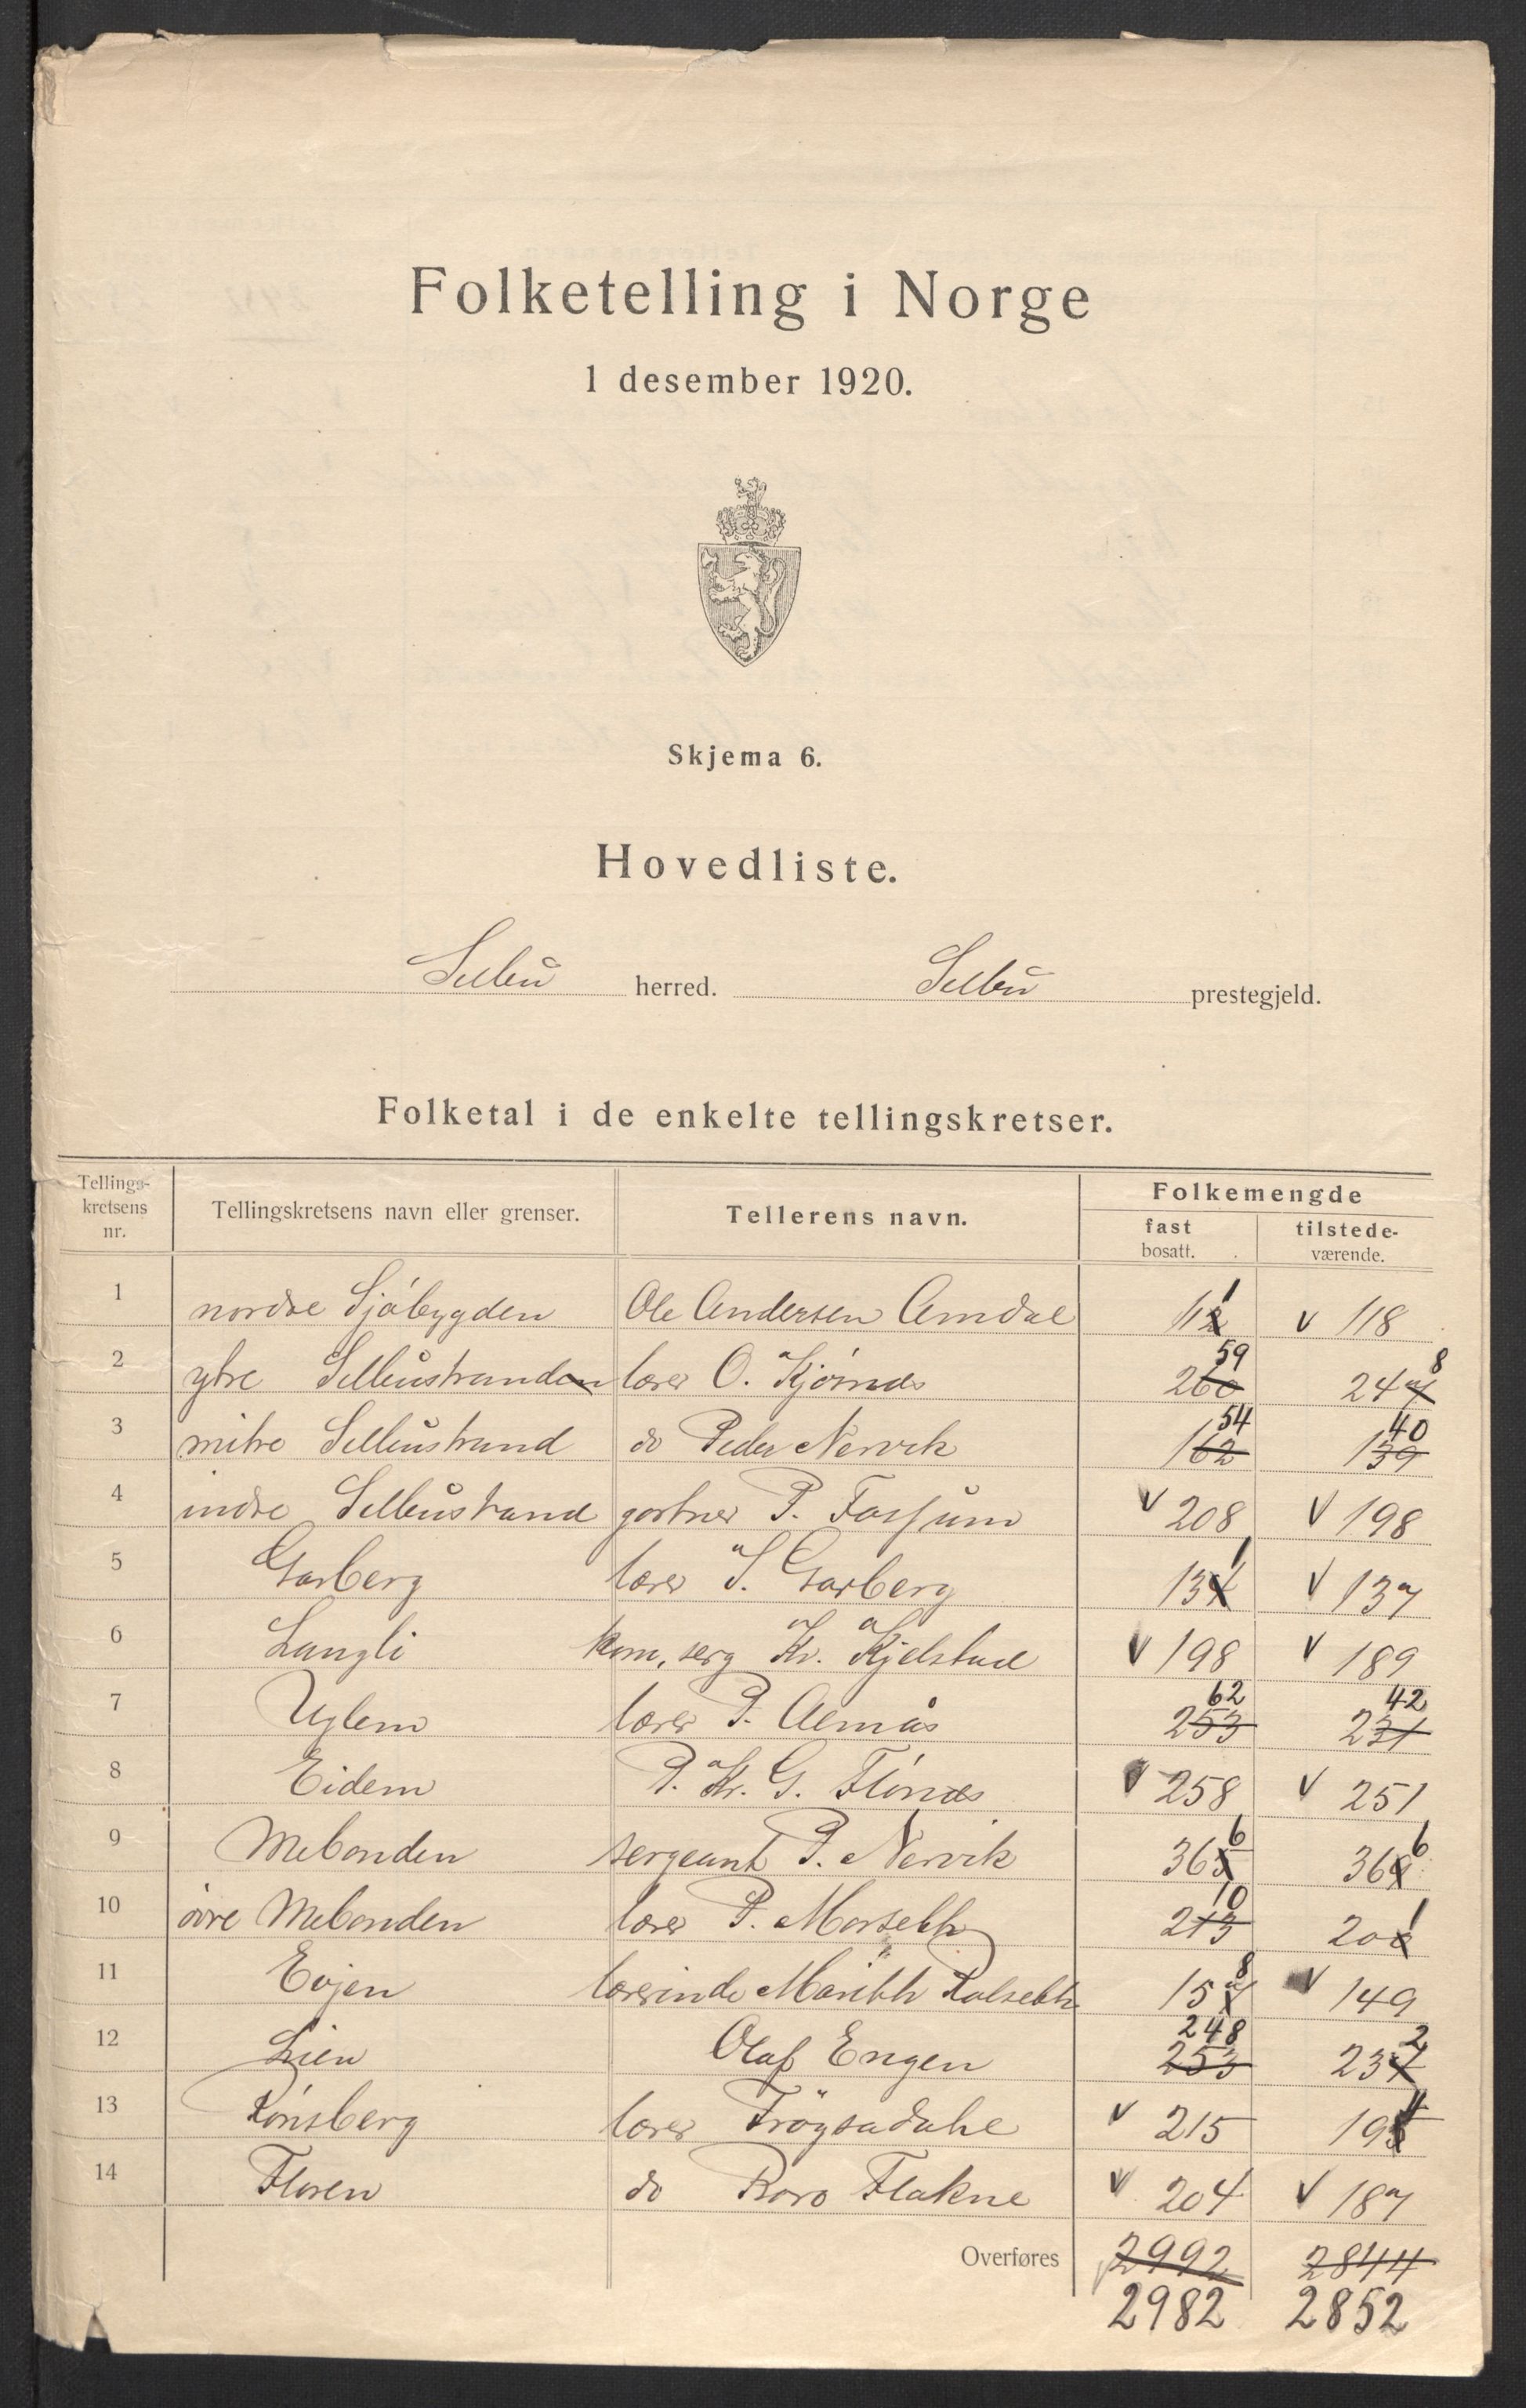 Folketelling i Norge
1 desember 1920.
Skjema 6.
Hovedliste.
Selbu herred. Selbu prestegjeld.
Folketal i de enkelte tellingskretser.
Tellings-kretsens nr. Tellingskretsens navn eller grenser. Tellerens navn. Folkemengde
fast bosatt. tilstede-værende.
1 nordre Sjöbygden Ole Andersen Amdal 112 1 v 118
2 ytre Selbustranden lærer O. Kjösnes 260 59 247 8
3 mitre Selbustrand do Peder Nervik 162 54 139 40
4 indre Selbustrand gartner P. Fossum v 208 v 198
5 Garberg lærer J. Garberg 134 1 v 137
6 Langli kom. serg Kr. Kjelstad v 198 v 189
7 Uglem lærer P. Almås 253 62 231 42
8 Eidem P. Kr. G. Flönes v 258 v 251
9 Mebonden sergeant P. Nervik 365 6 368 6
10 övre Mebonden lærer P. Morseth 213 10 200 1
11 Evjen lærerinde Marith Rolseth 157 8 v 149
12 Lien Olaf Engen 253 248 237 2
13 Rönsberg lærer Frögsadahl v 215 195 4
14 Floren do Roro Flakne v 204 v 187
Overføres 2992 2844
2982 2852